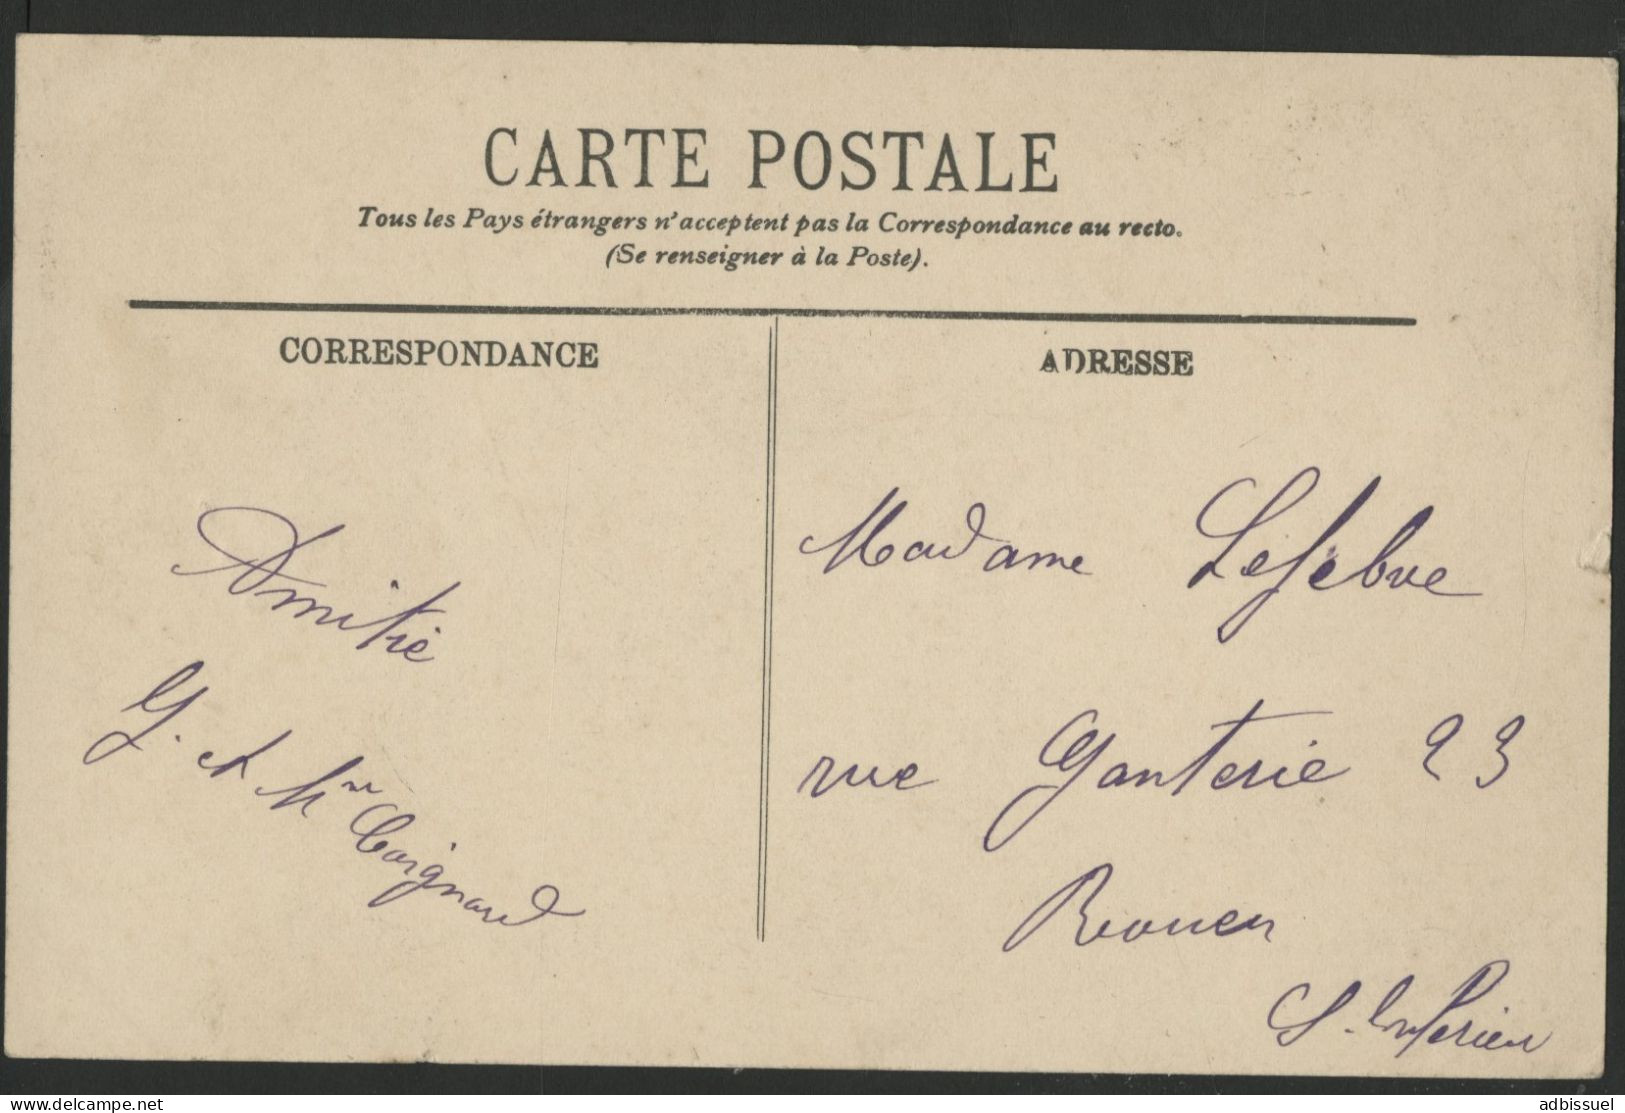 CARTE POSTALE
Tous les Pays étrangers n'acceptent pas la Correspondance au recto.
(Se renseigner à la Poste).
CORRESPONDANCE
ADRESSE
Amitié
G. et Mme Coignard
Madame Lefebvre
rue Ganterie 23
Rouen
S. Inférieu
adbissuel